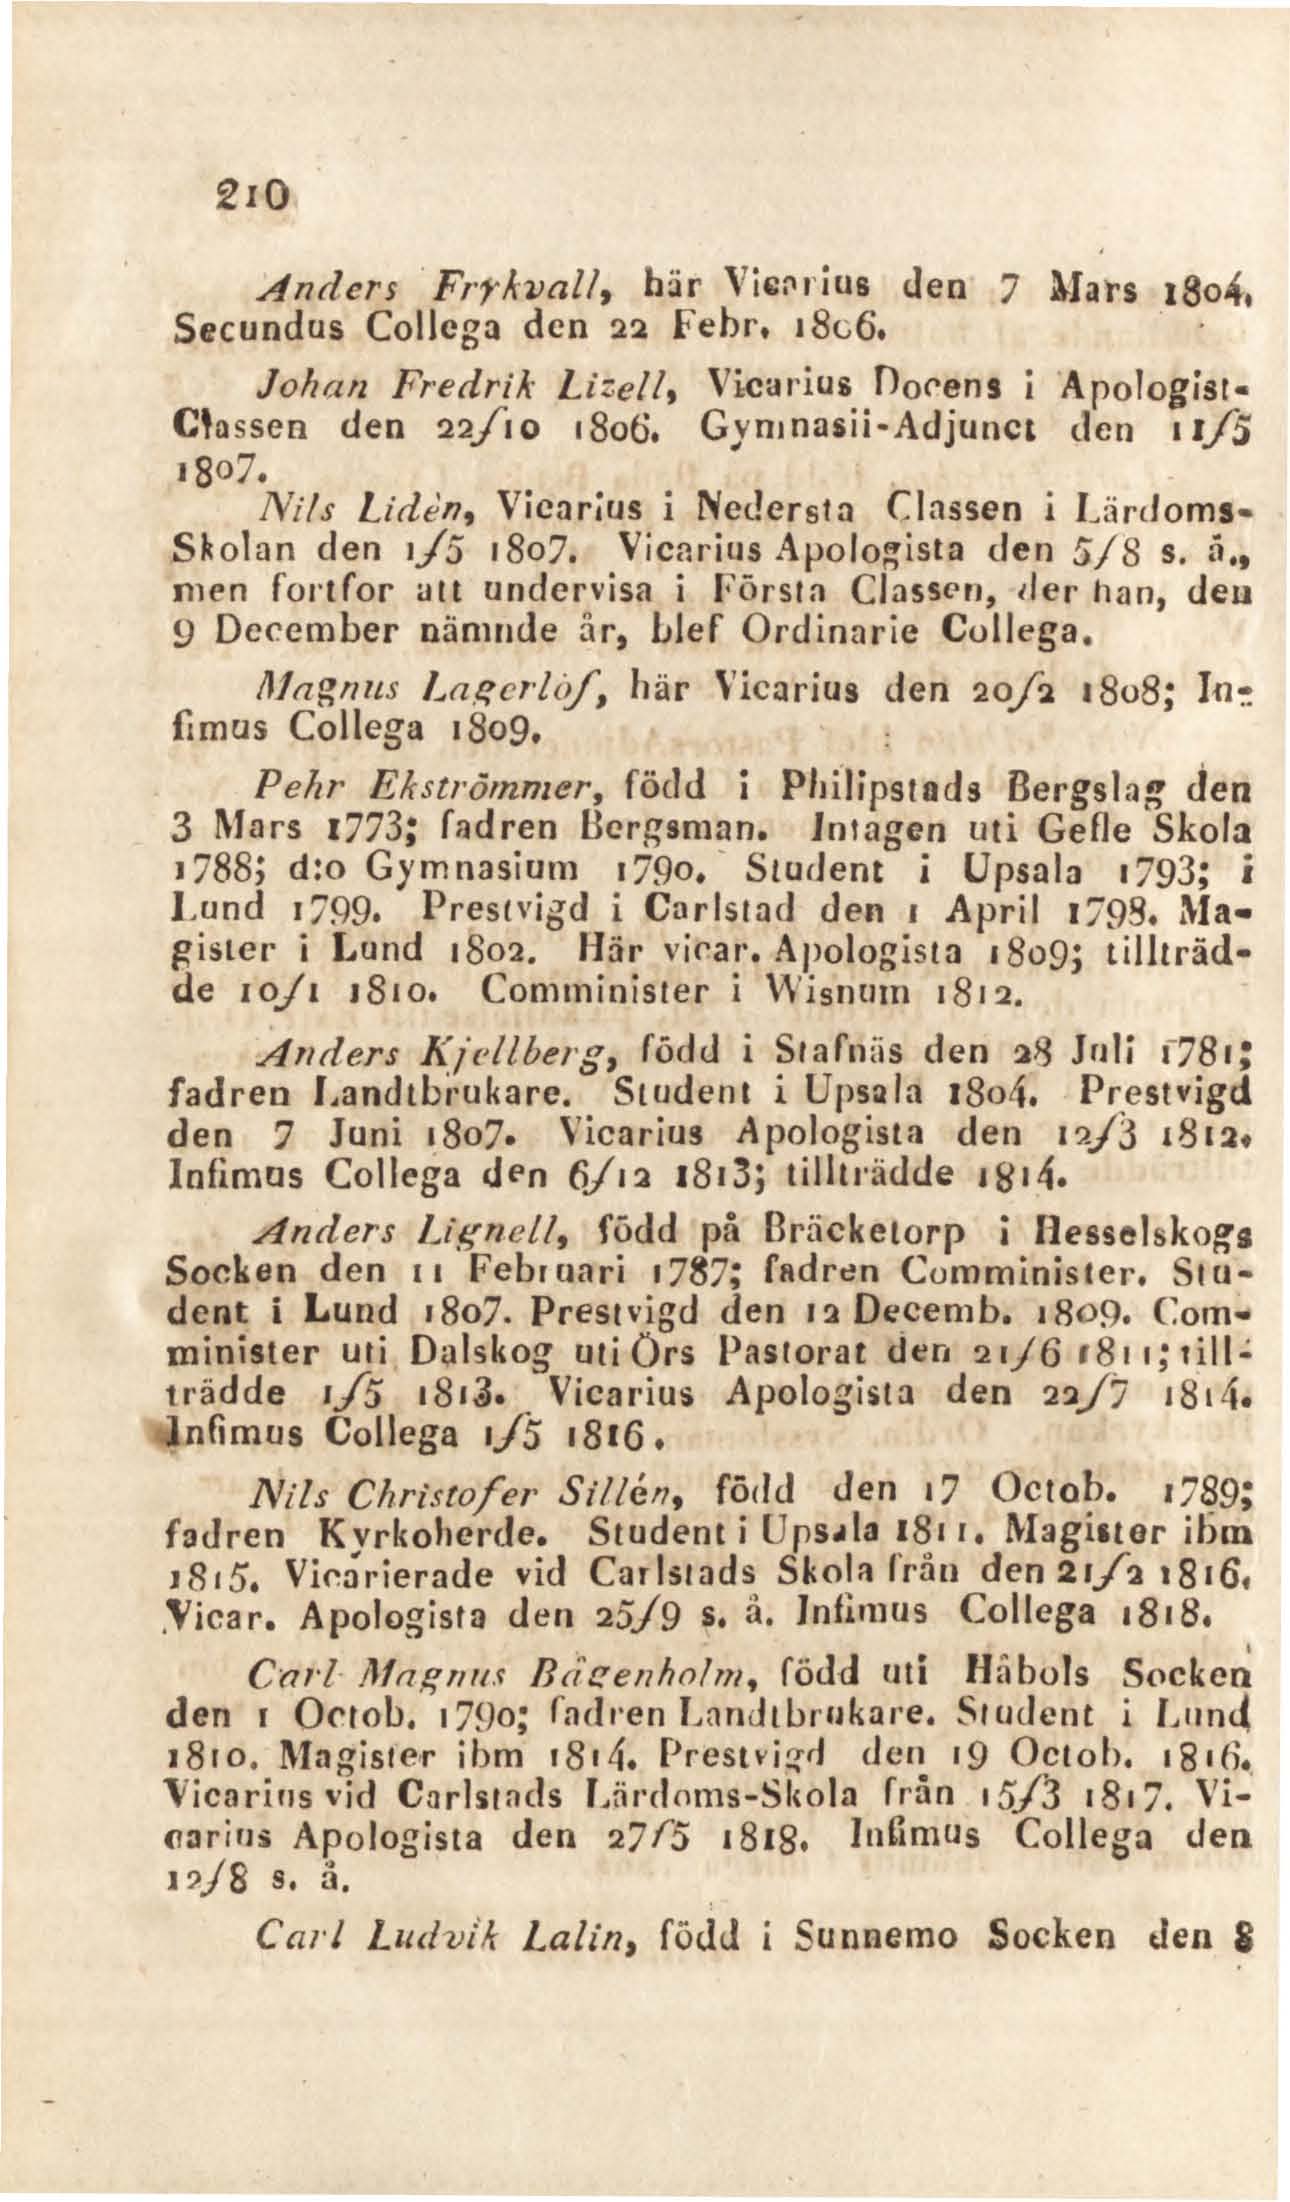 210
Anders Frykvall, här Vicarius den 7 Mars 1804.
Secundus Collega den 22 Febr. 1806.
Johan Fredrik Lizell, Vicarius Docens i Apologist-
Classen den 22/10 1806. Gymnasii-Adjunct den 11/5
1807.
Nils Lidèn, Vicarius i Nedersta Classen i Lärdoms-
Skolan den 1/5 1807. Vicarius Apologista den 5/8 s. å.,
men fortfor att undervisa i Första Classen, der han, den
9 December nämnde år, blef Ordinarie Collega.
Magnus Lagerlöf, här Vicarius den 20/2 1808; In-
fimus Collega 1809.
Pehr Ekströmmer, född i Philipstads Bergslag den
3 Mars 1773; fadren Bergsman. Intagen uti Gefle Skola
1788; d:o Gymnasium 1790. Student i Upsala 1793; i
Lund 1799. Prestvigd i Carlstad den 1 April 1798. Ma-
gister i Lund 1802. Här vicar. Apologista 1809; tillträd-
de 10/1 1810. Comminister i Wisnum 1812.
Anders Kjellberg, född i Stafnäs den 28 Juli 1781;
fadren Landtbrukare. Student i Upsala 1804. Prestvigd
den 7 Juni 1807. Vicarius Apologista den 12/3 1812.
Infimus Collega den 6/12 1813; tillträdde 1814.
Anders Lignell, född på Bräcketorp i Hesselskogs
Socken den 11 Februari 1787; fadren Comminister. Stu-
dent i Lund 1807. Prestvigd den 12 Decemb. 1809. Com-
minister uti Dalskog uti Örs Pastorat den 21/6 1811; till-
trädde 1/5 1813. Vicarius Apologista den 22/7 1814.
Infimus Collega 1/5 1816.
Nils Christofer Sillén, född den 17 Octob. 1789;
fadren Kyrkoherde. Student i Upsala 1811. Magister ibm
1815. Vicarierade vid Carlstads Skola från den 21/2 1816.
Vicar. Apologista den 25/9 s. å. Infimus Collega 1818.
Carl Magnus Bågenholm, född uti Håbols Socken
den 1 Octob. 1790; fadren Landtbrukare. Student i Lund
1810. Magister ibm 1814. Prestvigd den 19 Octob. 1816.
Vicarius vid Carlstads Lärdoms-Skola från 15/3 1817. Vi-
carius Apologista den 27/5 1818. Infimus Collega den
12/8 s. å.
Carl Ludvik Lalin, född i Sunnemo Socken den 8